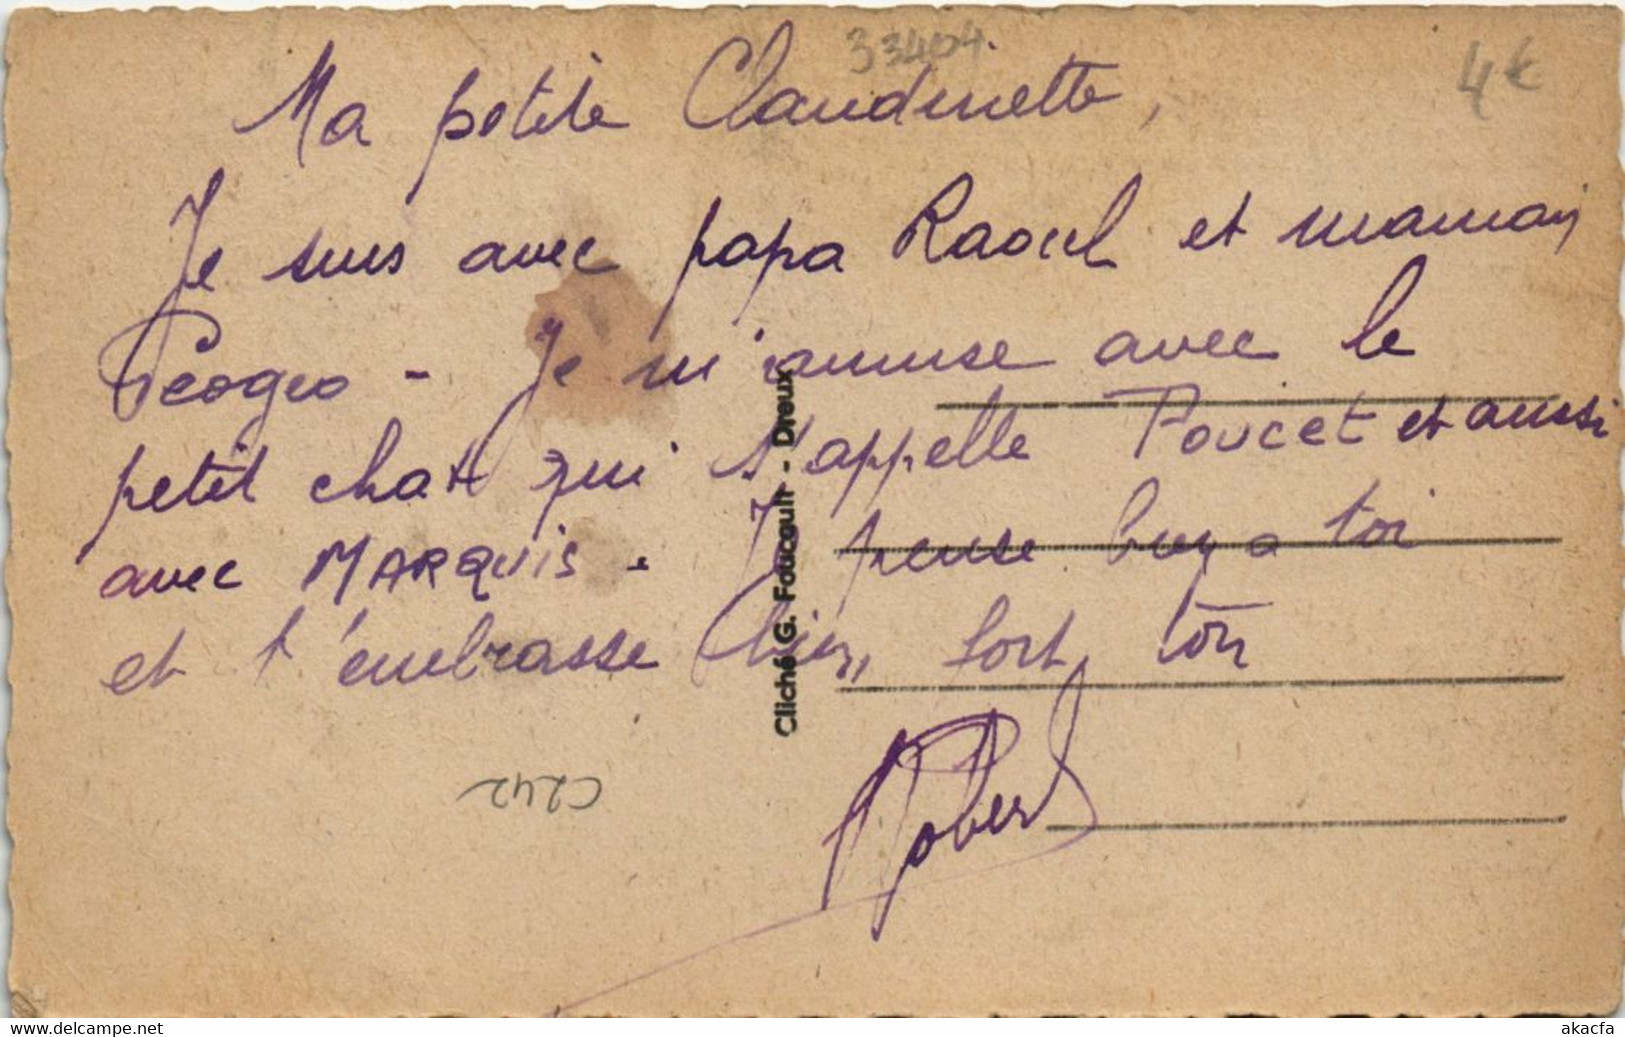 33404
4€
Ma petite Claudinette,
Je suis avec papa Raoul et maman
Geogeo - Je m'amuse avec le
petit chat qui s'appelle Poucet et aussi
avec MARQUIS. Je pense bien a toi
et t'embrasse bien fort, ton
Robert
C242
Cliché G. Foucault - Dreux
www.delcampe.net
akacfa